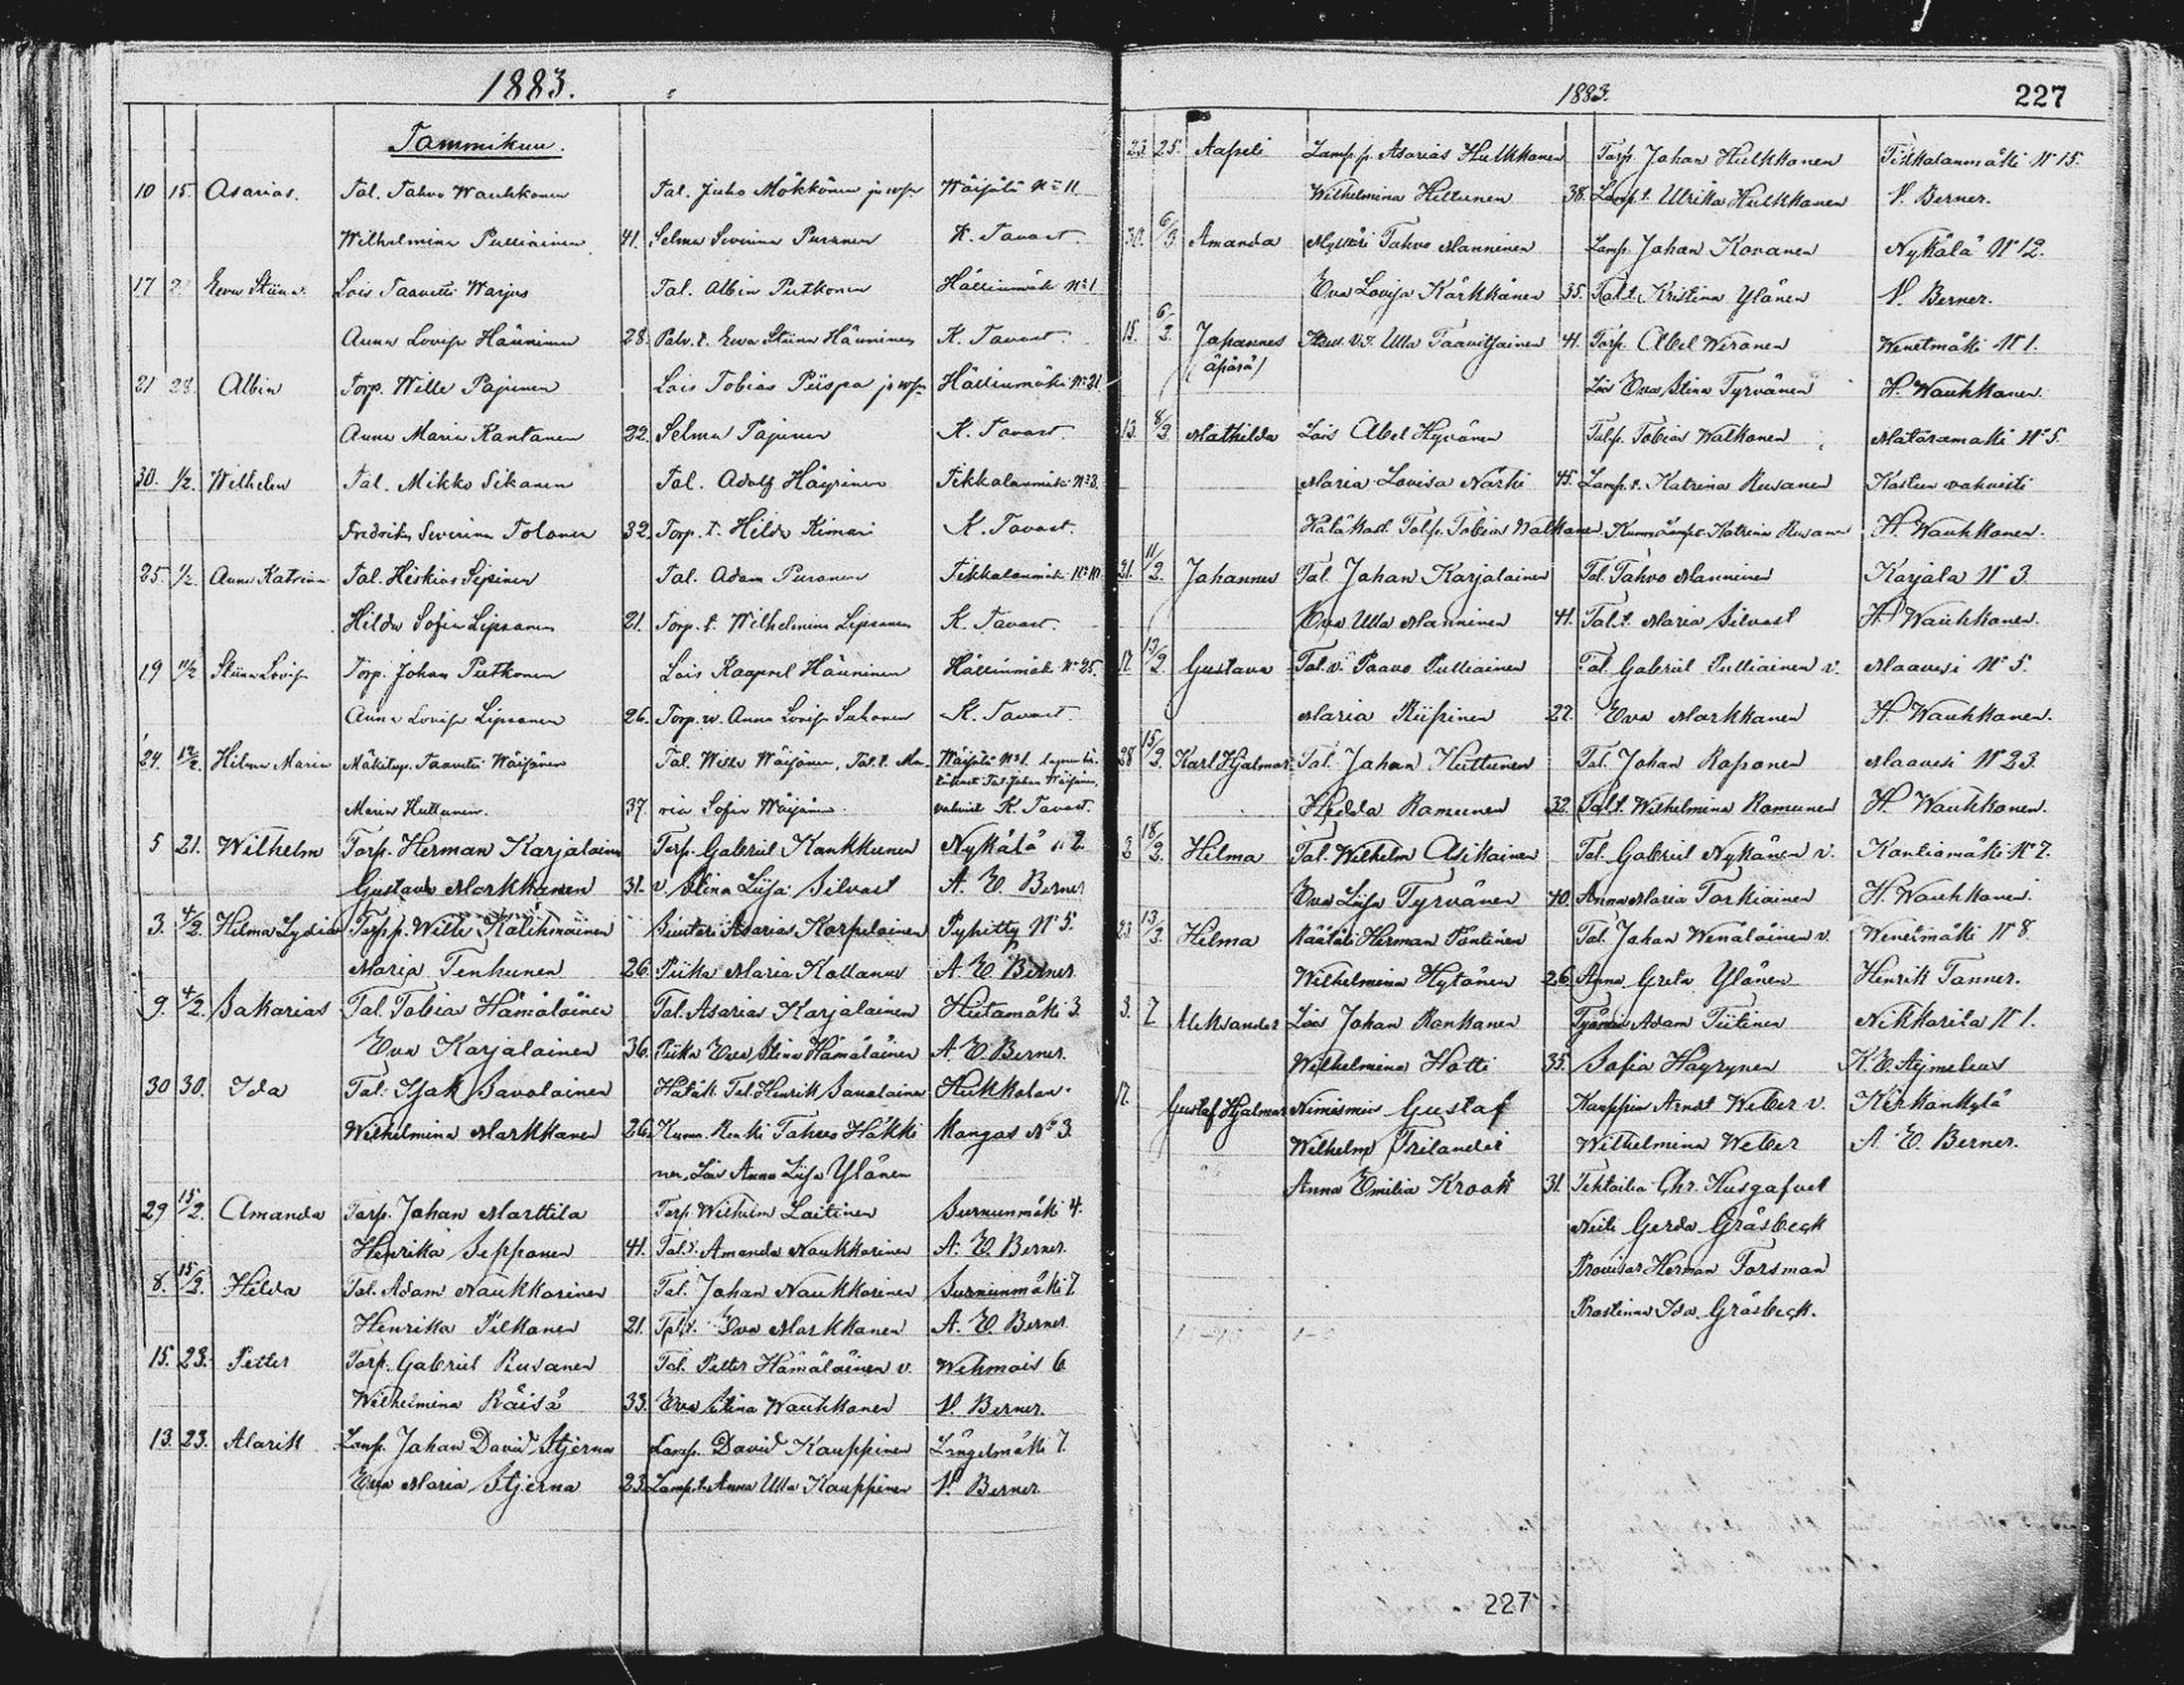 1883.
Tammikuu.
10 15 Asarias. Tal. Tahvo Wauhkonen Tal. Juho Mökkönen ja wpn Wäisälä No 11
Wilhelmina Pulliainen 41. Selma Severina Puranen K. Tavast.
17 Eeva Stiina. Lois Taavetti Warjus Tal. Albin Putkonen Hällinmäki No 1
Anna Lovisa Hänninen 28. Palv. t. Eeva Stiina Hänninen K. Tavast.
21 28. Albin Torp. Wille Pajunen Lois Tobias Piispa ja wpn Hällinmäki No 21
Anna Maria Kantanen 22. Selma Pajunen K. Tavast.
30. 1/2. Wilhelm Tal. Mikko Sikanen Tal. Adolf Häyrinen Tikkalanmäki No 3.
Fredrika Severina Tolonen 32. Torp. t. Hilda Kimari K. Tavast.
25. 1/2. Anna Katrina Tal. Hiskias Tal. Adam Puranen Tikkalanmäki No 10
Hilda Sofia Lipsanen 21. Torp. t. Wilhelmina Lipsanen K. Tavast.
19 11/2 Stiina Lovisa Torp. Johan Putkonen Lois Kaaprel Hänninen Hällinmäki No 25.
Anna Lovisa Lipsanen 26. Torp. w. Anna Lovisa Suhonen K. Tavast.
24. 12/2. Hilma Maria Mäkitup. Taavetti Wäisänen Tal. Wille Wäisänen, Tal. t. Ma- Wäisälä No 1.
Tal. Johan Wäisänen,
Maria Huttunen. 37. ria Sofia Wäisänen. vahvist K. Tavast.
5 21. Wilhelm Torp. Herman Karjalainen Torp. Gabriel Kankkunen Nykälä 2.
Gustava Markkanen 31. v. Stina Liisa Silvast A. E. Berner
3. 4/2. Hilma Lydia Torp. p. Wille Kolehmainen Suutari Asarias Karpelainen Pyhitty No 5.
Maria Tenhunen 26. Piika Maria Kollanus A. E. Berner.
9. 4/2. Sakarias Tal. Tobias Hämäläinen Tal. Asarias Karjalainen Hietamäki 3.
Eva Karjalainen 36. Piika Eva Stina Hämäläinen A. E. Berner.
30 30. Ida Tal. Isak Savolainen Hätäk. Tal. Henrik Savolainen Hukkolan-
Wilhelmina Markkanen 26. Kumm. Renki Tahvo Häkki Kangas No 3.
nen, Lois Anna Liisa Ylänen
29 15/2. Amanda Torp. Johan Marttila Torp. Wilhelm Laitinen Surnunmäki 4.
Henrika Sepponen 41. Tal. t. Amanda Naukkarinen A. E. Berner.
8. 15/2. Hilda Tal. Adam Naukkarinen Tal. Johan Naukkarinen Surnunmäki 7.
Henrika Pilkanen 21. Tal. t. Eva Markkanen A. E. Berner.
15. 23. Petter Torp. Gabriel Rusanen Tal. Petter Hämäläinen v. Wehmais 6.
Wilhelmina Räisä 33. Eva Stina Wauhkonen V. Berner.
13. 23. Alarik Lamp. Johan David Stjerna Lamp. David Kauppinen Längelmäki 7.
Eva Maria Stjerna 23. Lamp. t. Anna Ulla Kauppinen V. Berner.
1883.
227
23. 25. Aapeli Lamp. p. Asarias Hulkkonen Torp. Johan Hulkkonen Tikkalanmäki No 15.
Wilhelmina Hiltunen 38. Lamp. t. Ulrika Hulkkonen V. Berner.
30. 6/3. Amanda Mylläri Tahvo Manninen Lamp. Johan Kovanen Nykälä No 12.
Eva Lovisa Kärkkänen 35. Tal. t. Kristina Ylänen V. Berner.
15. 6/2. Johannes Ulla Taavitsainen 41. Torp. Abel Weranen Wenetmäki No 1.
(äpärä) Lois Eva Stina Tyrvänen H. Wauhkonen.
13. 8/2. Mathilda Lois Abel Hyvönen Tal. p. Tobias Walkonen Mataramäki No 5.
Maria Lovisa Närhi 45. Lamp. t. Katrina Rusanen Kasteen vahvisti
Hätäkast. Tal. p. Tobias Walkonen. Kumm. Lamp. t. Katrina Rusanen H. Wauhkonen.
31. 11/2. Johannes Tal. Johan Karjalainen Tal. Tahvo Manninen Karjala No 3.
Eva Ulla Manninen 41. Tal. t. Maria Silvast H. Wauhkonen.
17. 13/2. Gustava Tal. v. Paavo Pulliainen Tal. Gabriel Pulliainen v. Maavesi No 5.
Maria 27. Eva Markkanen H. Wauhkonen.
28 15/2. Karl Hjalmar. Tal. Johan Huttunen Tal. Johan Roponen Maavesi No 23.
Hedda Romunen 32. Tal. t. Wilhelmina Romunen H. Wauhkonen.
2 18/2. Hilma Tal. Wilhelm Asikainen Tal. Gabriel Nykänen v. Kontiomäki No 7.
Eva Liisa Tyrvänen 40. Anna Maria Torkiainen H. Wauhkonen.
23 13/3. Helma Räätäli Herman Pöntinen Tal. Johan Wenäläinen v. Wenetmäki No 8.
Wilhelmina Hytönen 26. Anna Greta Ylänen Henrik Tanner.
3. 7. Aleksander Lois Johan Ronkanen Työmies Adam Tiitinen Nikkarila No 1.
Wilhelmina Hotti 35. Sofia Häyrynen K. E. Aejmelæus
17. Gustaf Hjalmar Nimismies Gustaf Kauppias Arndt Weber v. Kirkonkylä
Wilhelm Frilander Wilhelmina Weber A. E. Berner.
Anna Emilia Krook 31. Tehtailia Chr. Husgafvel
Neiti Gerda Gräsbeck
Provisor Herman Forsman
Prostinna Ida Gräsbeck.
227